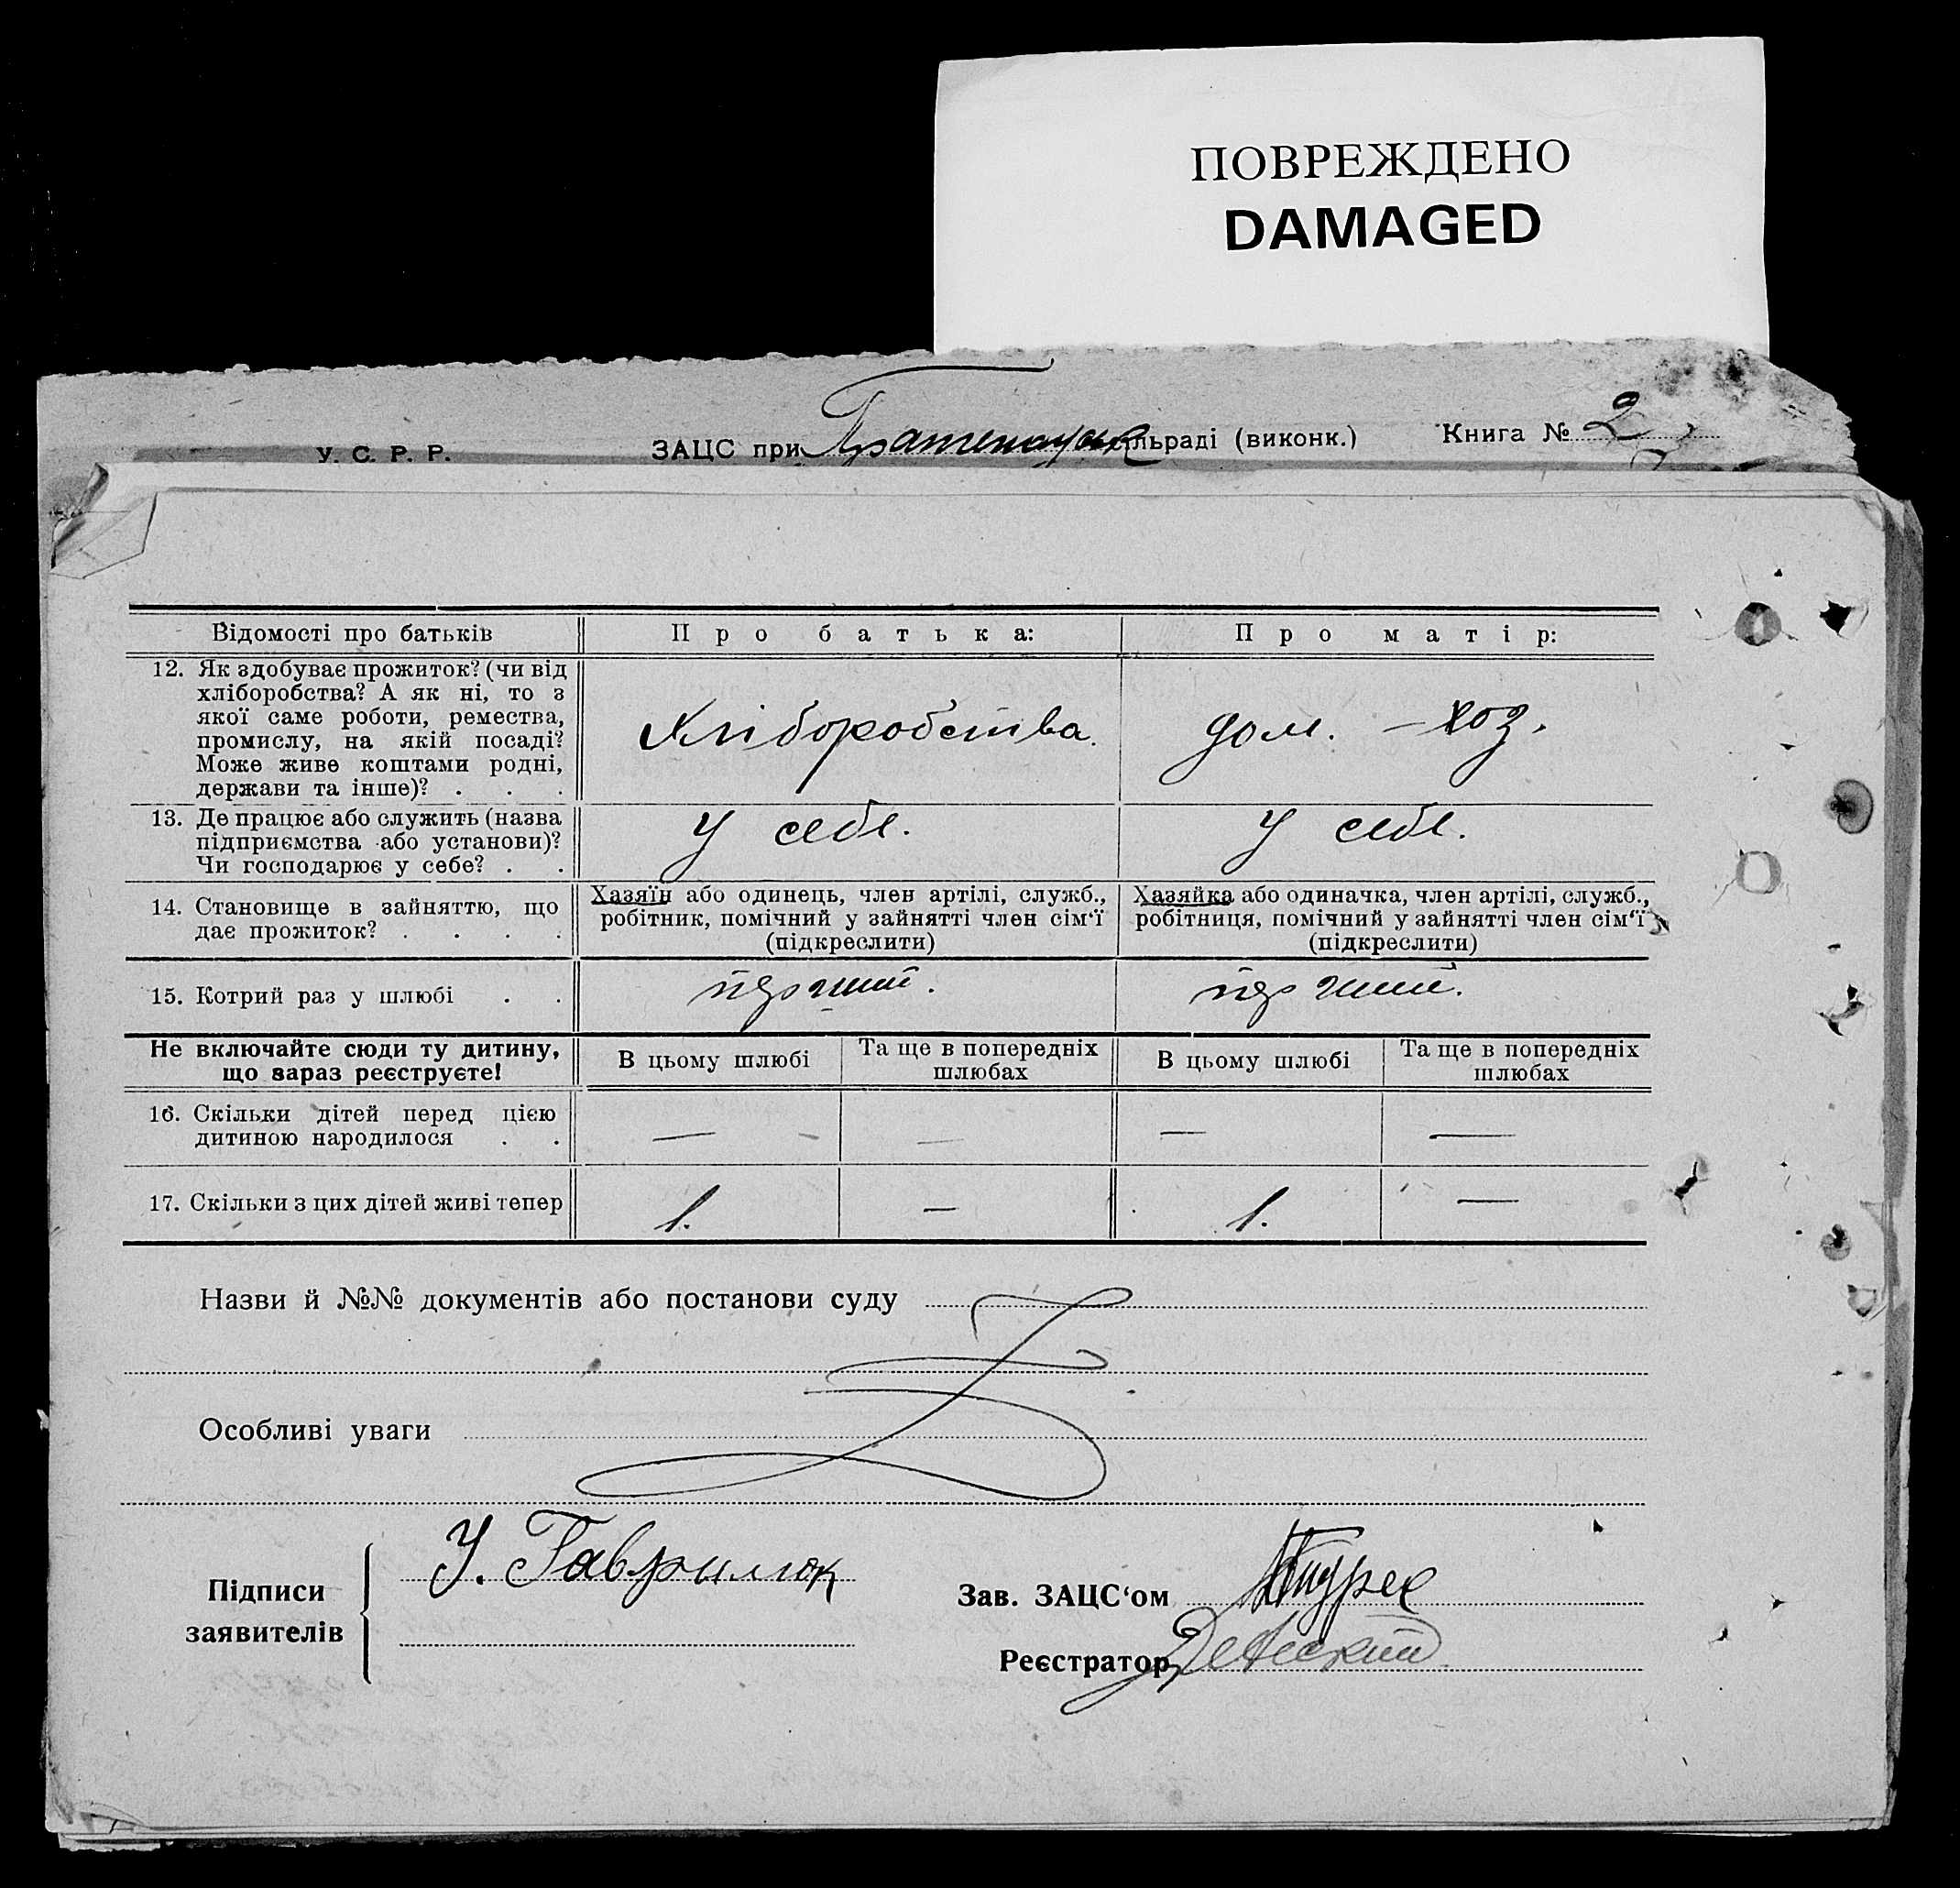 ПОВРЕЖДЕНО
DAMAGED
У. С. Р. Р. ЗАЦС при сільраді (виконк.) Книга № 2
Відомості про батьків Про батька: Про матір:
12. Як здобуває прожиток? (чи від
хліборобства? А як ні, то з
якої саме роботи, ремества,
промислу, на якій посаді?
Може живе коштами родні,
держави та інше)? . . .
Хліборобства. дом. – хоз.
13. Де працює або служить (назва
підприємства або установи)?
Чи господарює у себе? . .
У себе. У себе.
14. Становище в зайняттю, що
дає прожиток? . . . .
Хазяїн або одинець, член артілі, служб.,
робітник, помічний у зайнятті член сім‘ї
(підкреслити)
Хазяйка або одиначка, член артілі, служб.,
робітниця, помічний у зайнятті член сім‘ї
(підкреслити)
15. Котрий раз у шлюбі . .
перший. перший.
Не включайте сюди ту дитину,
що зараз реєструєте!
В цьому шлюбі
Та ще в попередніх
шлюбах
В цьому шлюбі
Та ще в попередніх
шлюбах
16. Скільки дітей перед цією
дитиною народилося . .
— — — —
17. Скільки з цих дітей живі тепер
1. — 1. —
Назви й №№ документів або постанови суду
Особливі уваги
Підписи
заявителів
У. Гаврилюк
Зав. ЗАЦС‘ом
Реєстратор